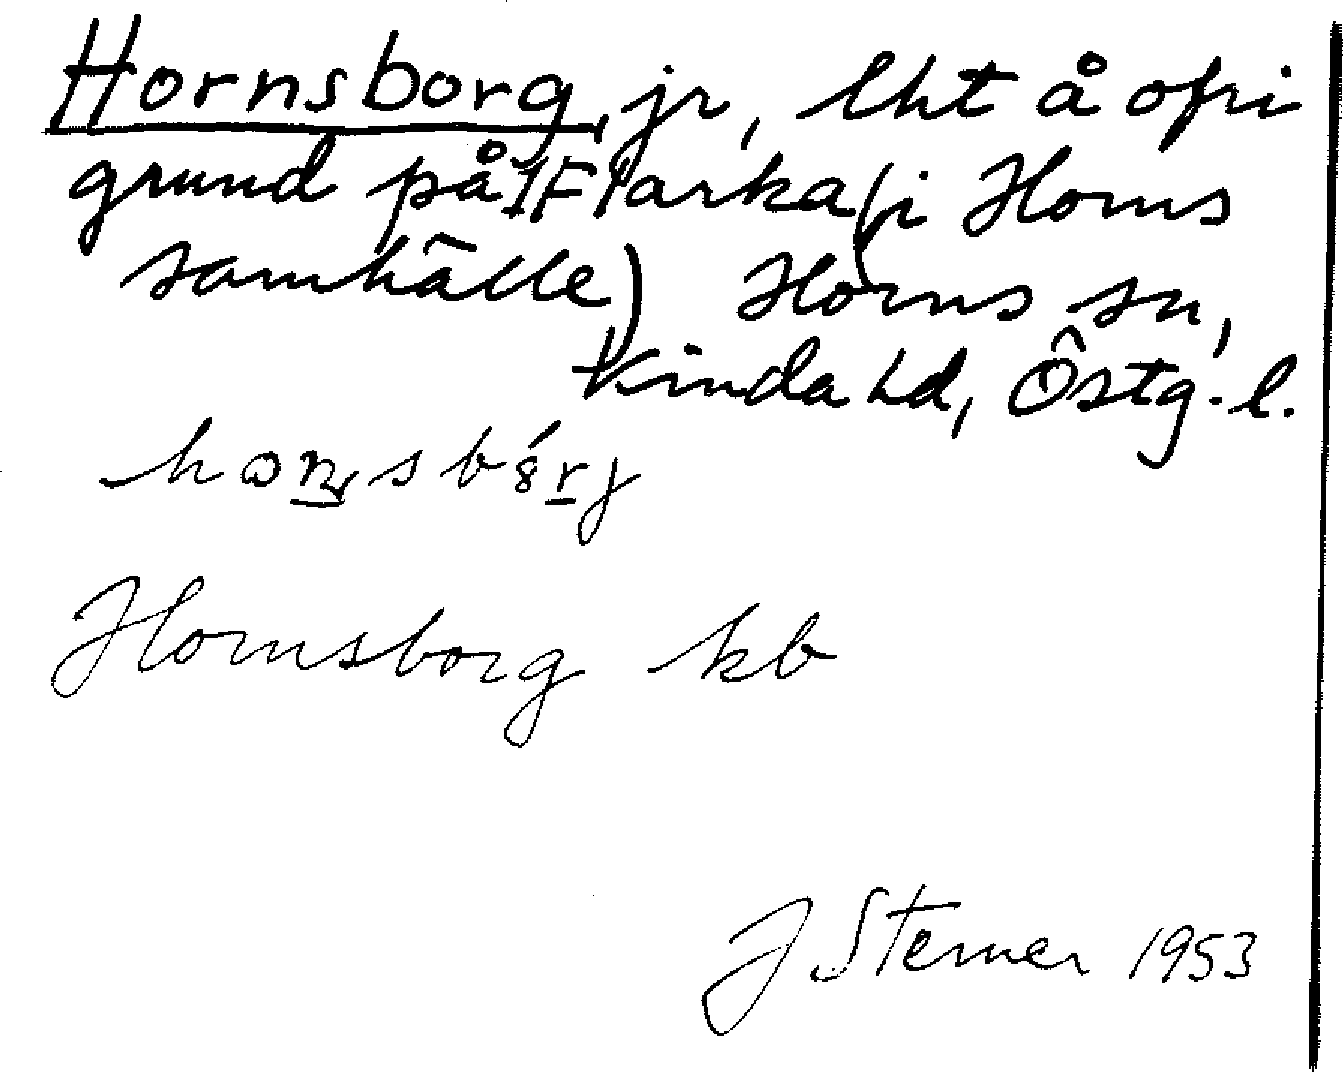 Hornsborg, jr, lht å ofri
grund på 1 Flarka (i Horns
samhälle) Horns sn,
Kinda hd, Östg. l.
Hornsborg kb
J Sterner 1953